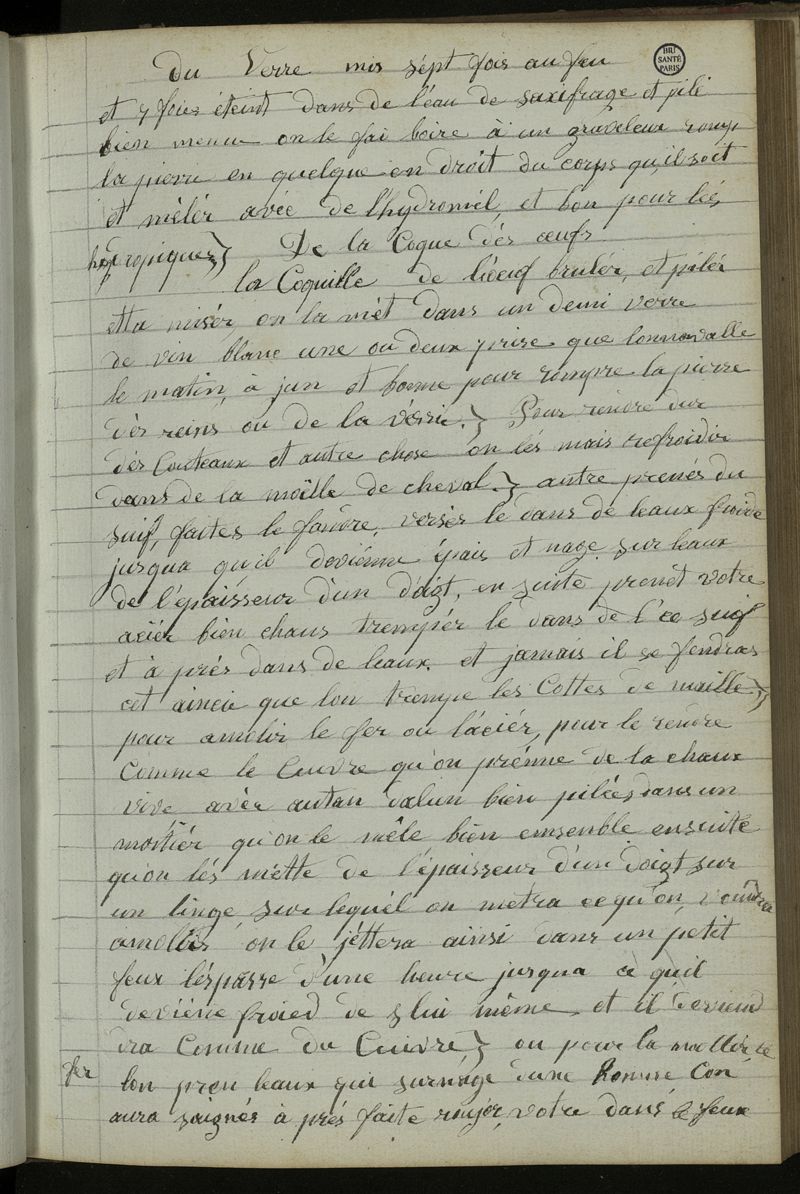 Du Verre mis sépt fois au feu
BIU
SANTÉ
PARIS
et 7 fois éteint dans de l'éau de saxifrage et pilé
bien menu on le fai boire à un graveleux romp
la pierre en quelque en droit du corps qu'il soit
et mélér avéc de l'hydromél, et bon pour lés
hydropiques} De la Coque dés œufs
la Coquille de l'œuf brulér, et pilér
et la misér, on la mét dans un demi verre
de vin blanc une ou deux prise que lonnavalle
le matin, à jun et bonne pour rompre la pierre
dés reins ou de la véssie.} Pour rendre dur
dés Couteaux et autre chose on lés mais refroidir
dans de la moëlle de cheval.} autre prenés du
suif, faites le fondre, versés le dans de leaux froide
jusqua qu'il deviénne épais et nage sur leaux
de l'épaisseur d'un doigt, en suite prenét votre
aciér bien chaus trempér le dans de l' ce suif
et à prés dans de leaux. et jamais il se fendras
cet ainci que lon trempe les Cottes de maille.}
pour amolir le fer ou l'áciér, pour le rendre
Comme le Cuivre qu'on prénne de la chaux
vive avéc autan dalun bien pilées dans un
mortiér qu'on le méle bien emsenble ensuite
qu'on lés métte de l'épaisseur d'un doigt sur
un linge sur lequél on metra ce qu'on voudra
amolir on le jéttera ainsi dans un petit
feux léspasse d'une heure jusqua ce qu'il
deviéne froied de lui même et il deviend
dra Comme du Cuivre} ou pour la mollir le
fer lon pren leaux qui surnage dune homme Con
aura saignés à prés faite rougir, votre dans le feux